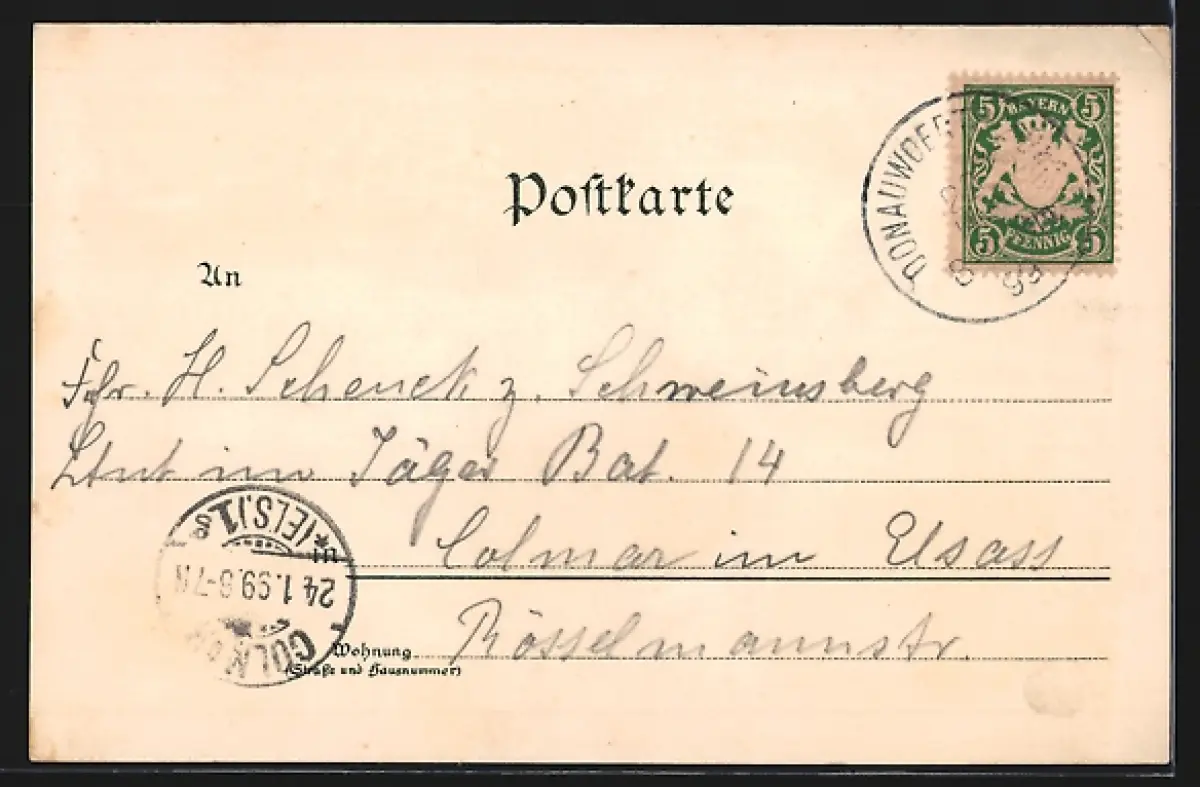 Postkarte
5 BAYERN 5
5 PFENNIG 5
DONAUWOER
99
An
Fhr. H. Schenck z. Schweinsberg
Ltnt im Jäger Bat. 14
in Colmar im Elsass
*(ELS.)1
24.1.99.6-7N
COLMAR
Wohnung Rösselmannstr.
(Straße und Hausnummer)